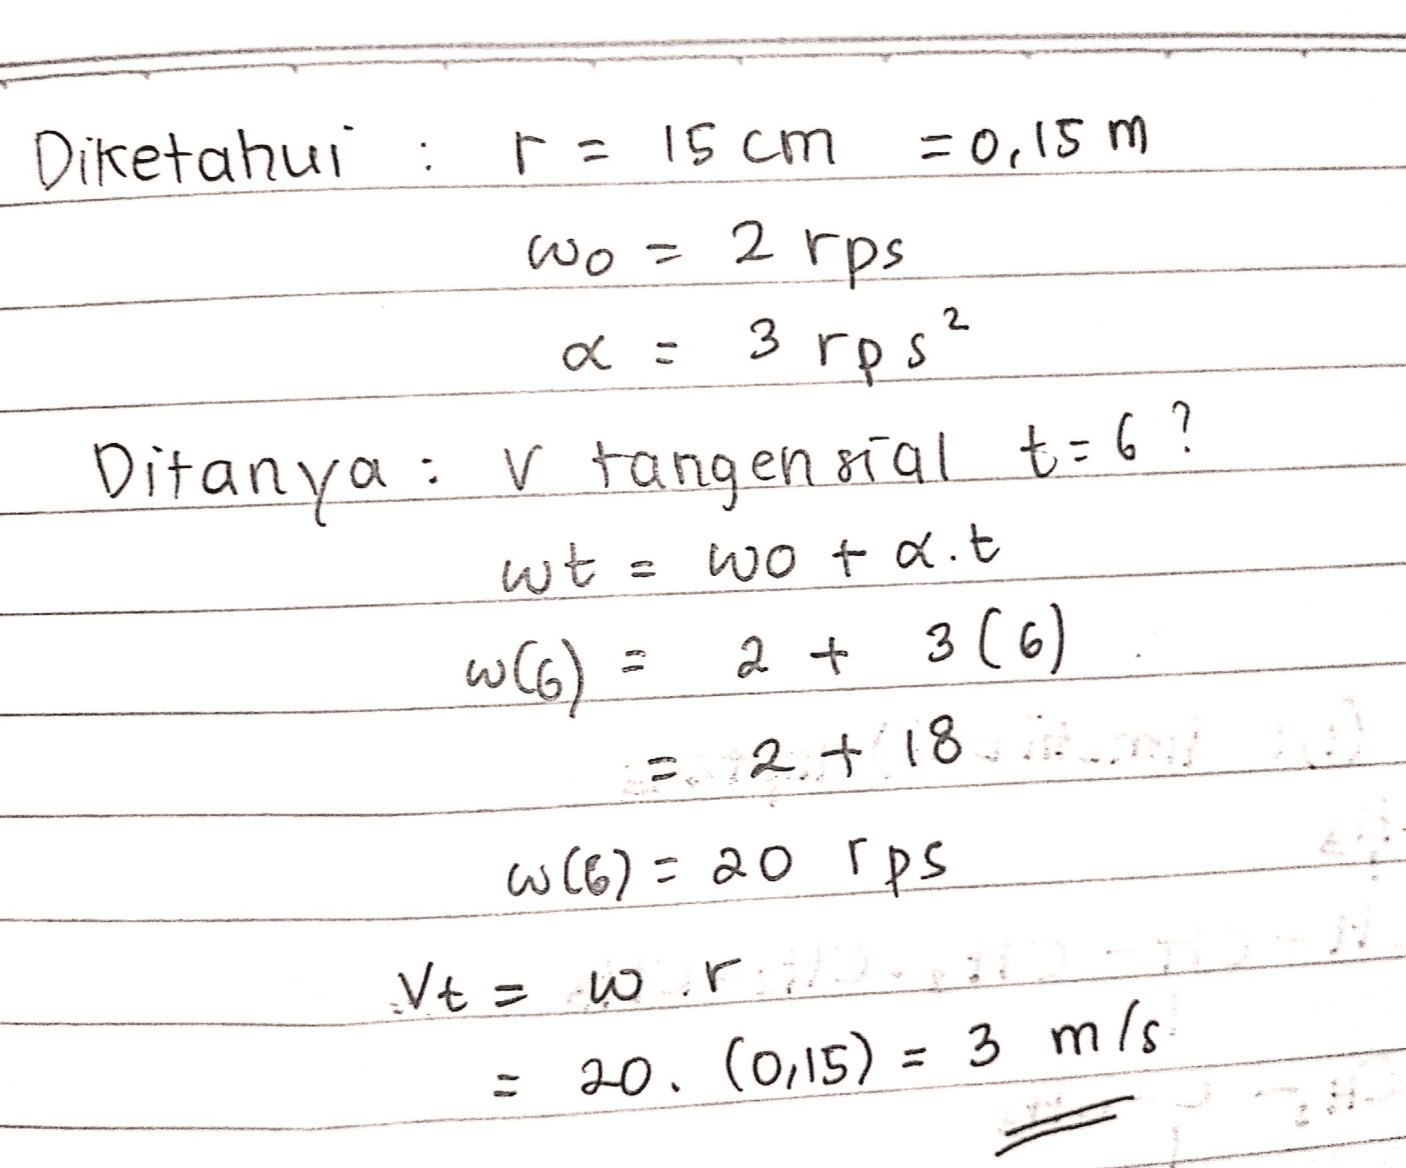 Diketahui : r = 15 cm = 0,15 m
ωo = 2 rps
α = 3 rps²
Ditanya : v tangensial t = 6 ?
ωt = ωo + α.t
ω(6) = 2 + 3 (6)
= 2 + 18
ω(6) = 20 rps
Vt = ω . r
= 20 . (0,15) = 3 m/s